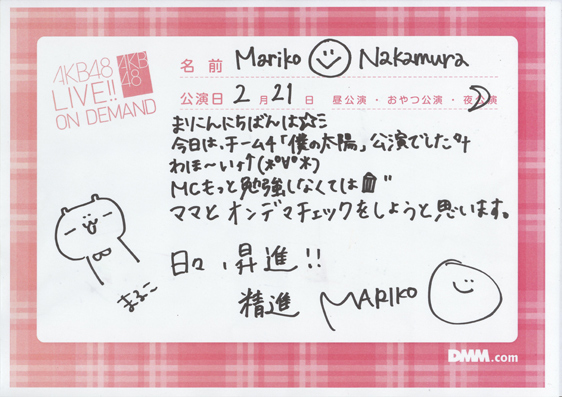 AKB48
LIVE!!
ON DEMAND
AKB
48
名前 Mariko Nakamura
公演日 2月21日 昼公演・おやつ公演・夜公演
まりこんにちばんは
今日は、チーム4「僕の太陽」公演でした
わほ〜いっ↑
MCもっと勉強しなくては
ママとオンデマチェックをしようと思います。
日々、昇進!!
精進 MARIKO
まりこ
DMM.com